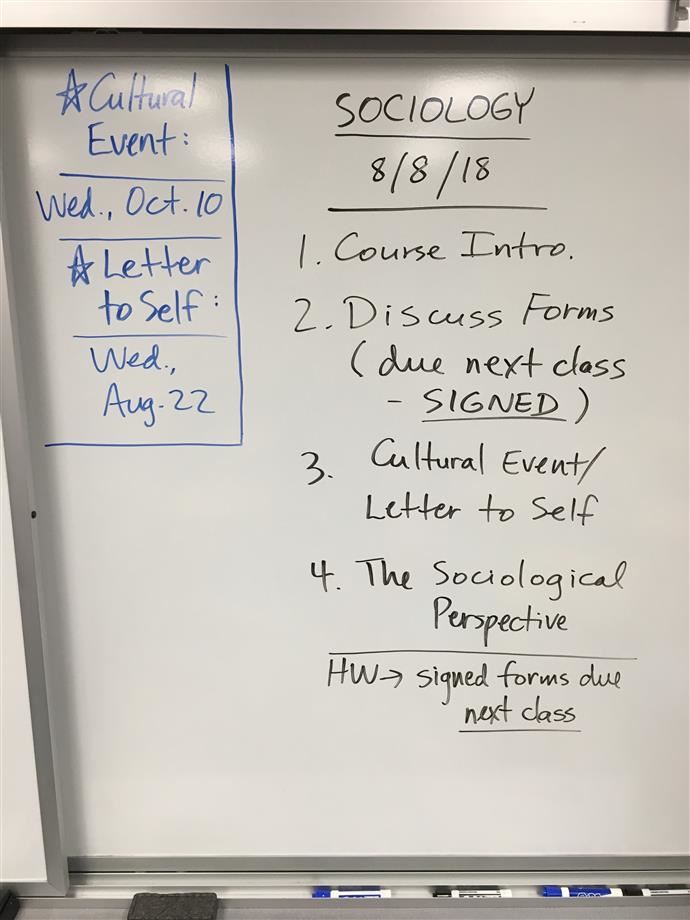 ☆Cultural
Event:
Wed., Oct. 10
☆Letter
to Self:
Wed.,
Aug. 22
SOCIOLOGY
8/8/18
1. Course Intro.
2. Discuss Forms
(due next class
- SIGNED)
3. Cultural Event/
Letter to Self
4. The Sociological
Perspective
HW→ signed forms due
next class